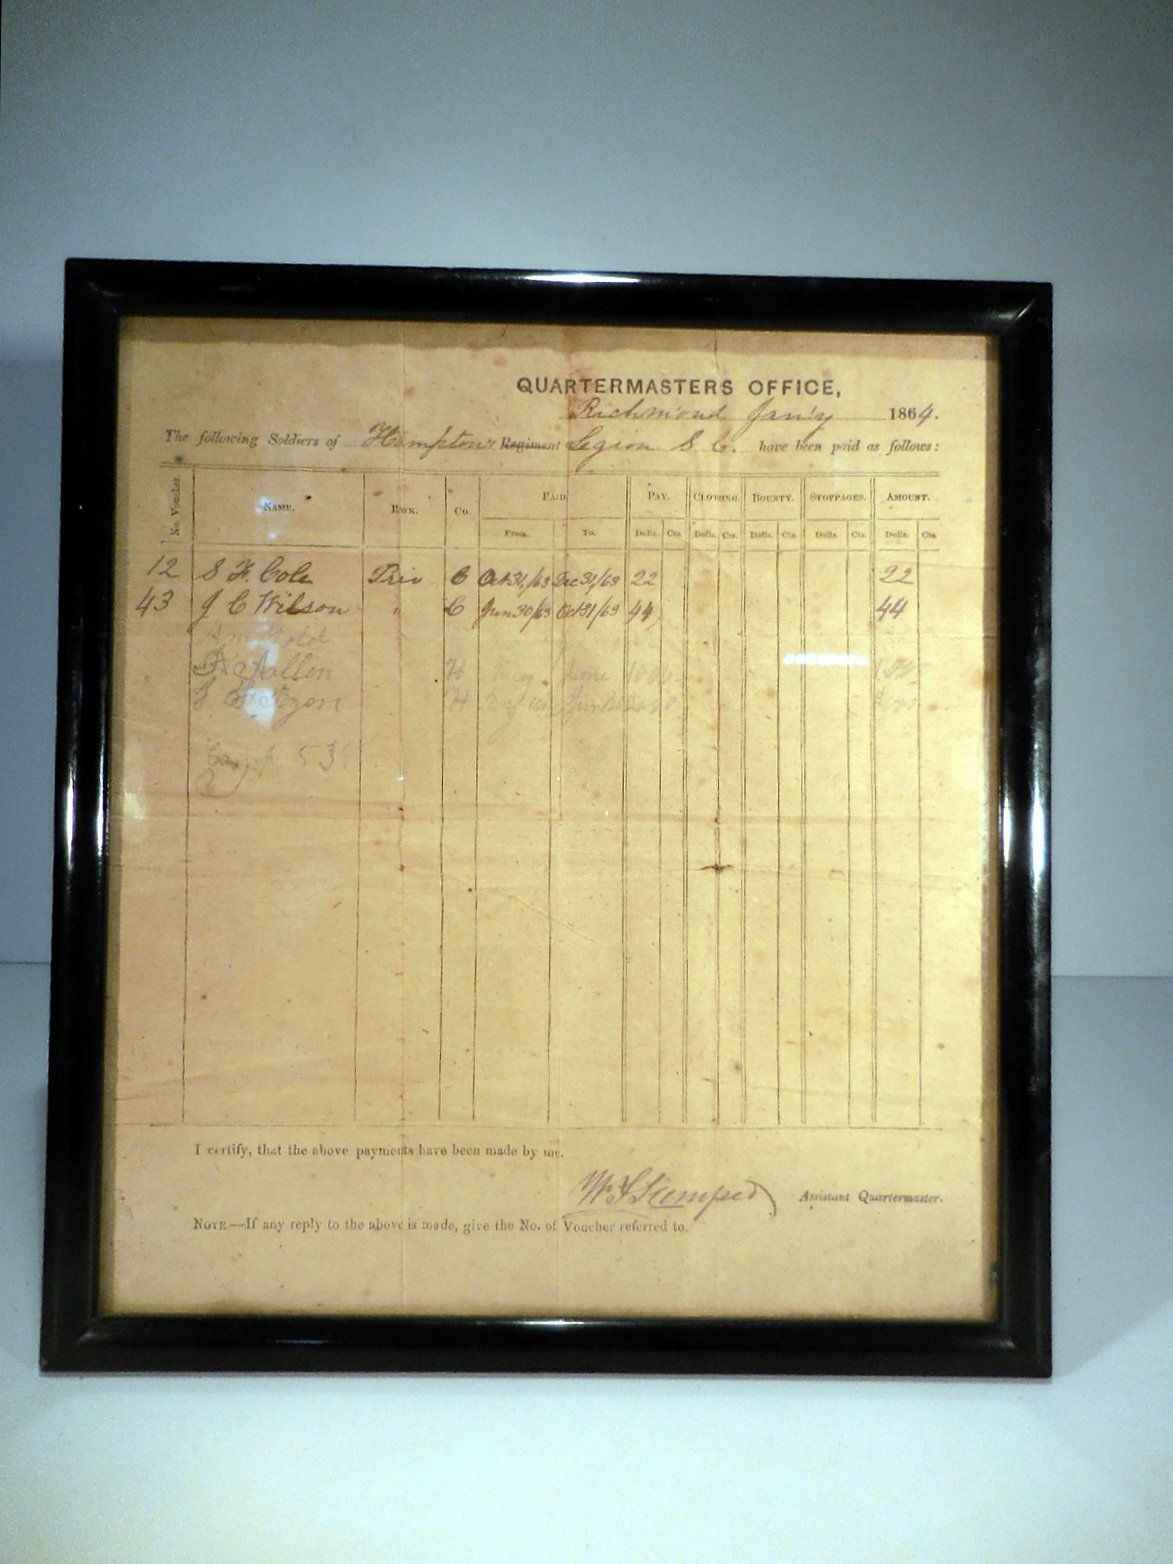 QUARTERMASTERS OFFICE,
Richmond Jan'y 1864.
The following Soldiers of Hampton's Regiment Legion S C. have been paid as follows:
No. Voucher. NAME. RANK. Co. PAID. PAY. CLOTHING. BOUNTY. STOPPAGES. AMOUNT.
From. To. Dolls. Cts. Dolls. Cts. Dolls. Cts. Dolls. Cts. Dolls. Cts.
12 S F. Cole Priv C Oct 31/63 Dec 31/63 22 22
43 J C Wilson " C Jun 30/63 Oct 31/63 44 44
Allen H May June
H
I certify, that the above payments have been made by me.
Assistant Quartermaster.
NOTE.—If any reply to the above is made, give the No. of Voucher referred to.